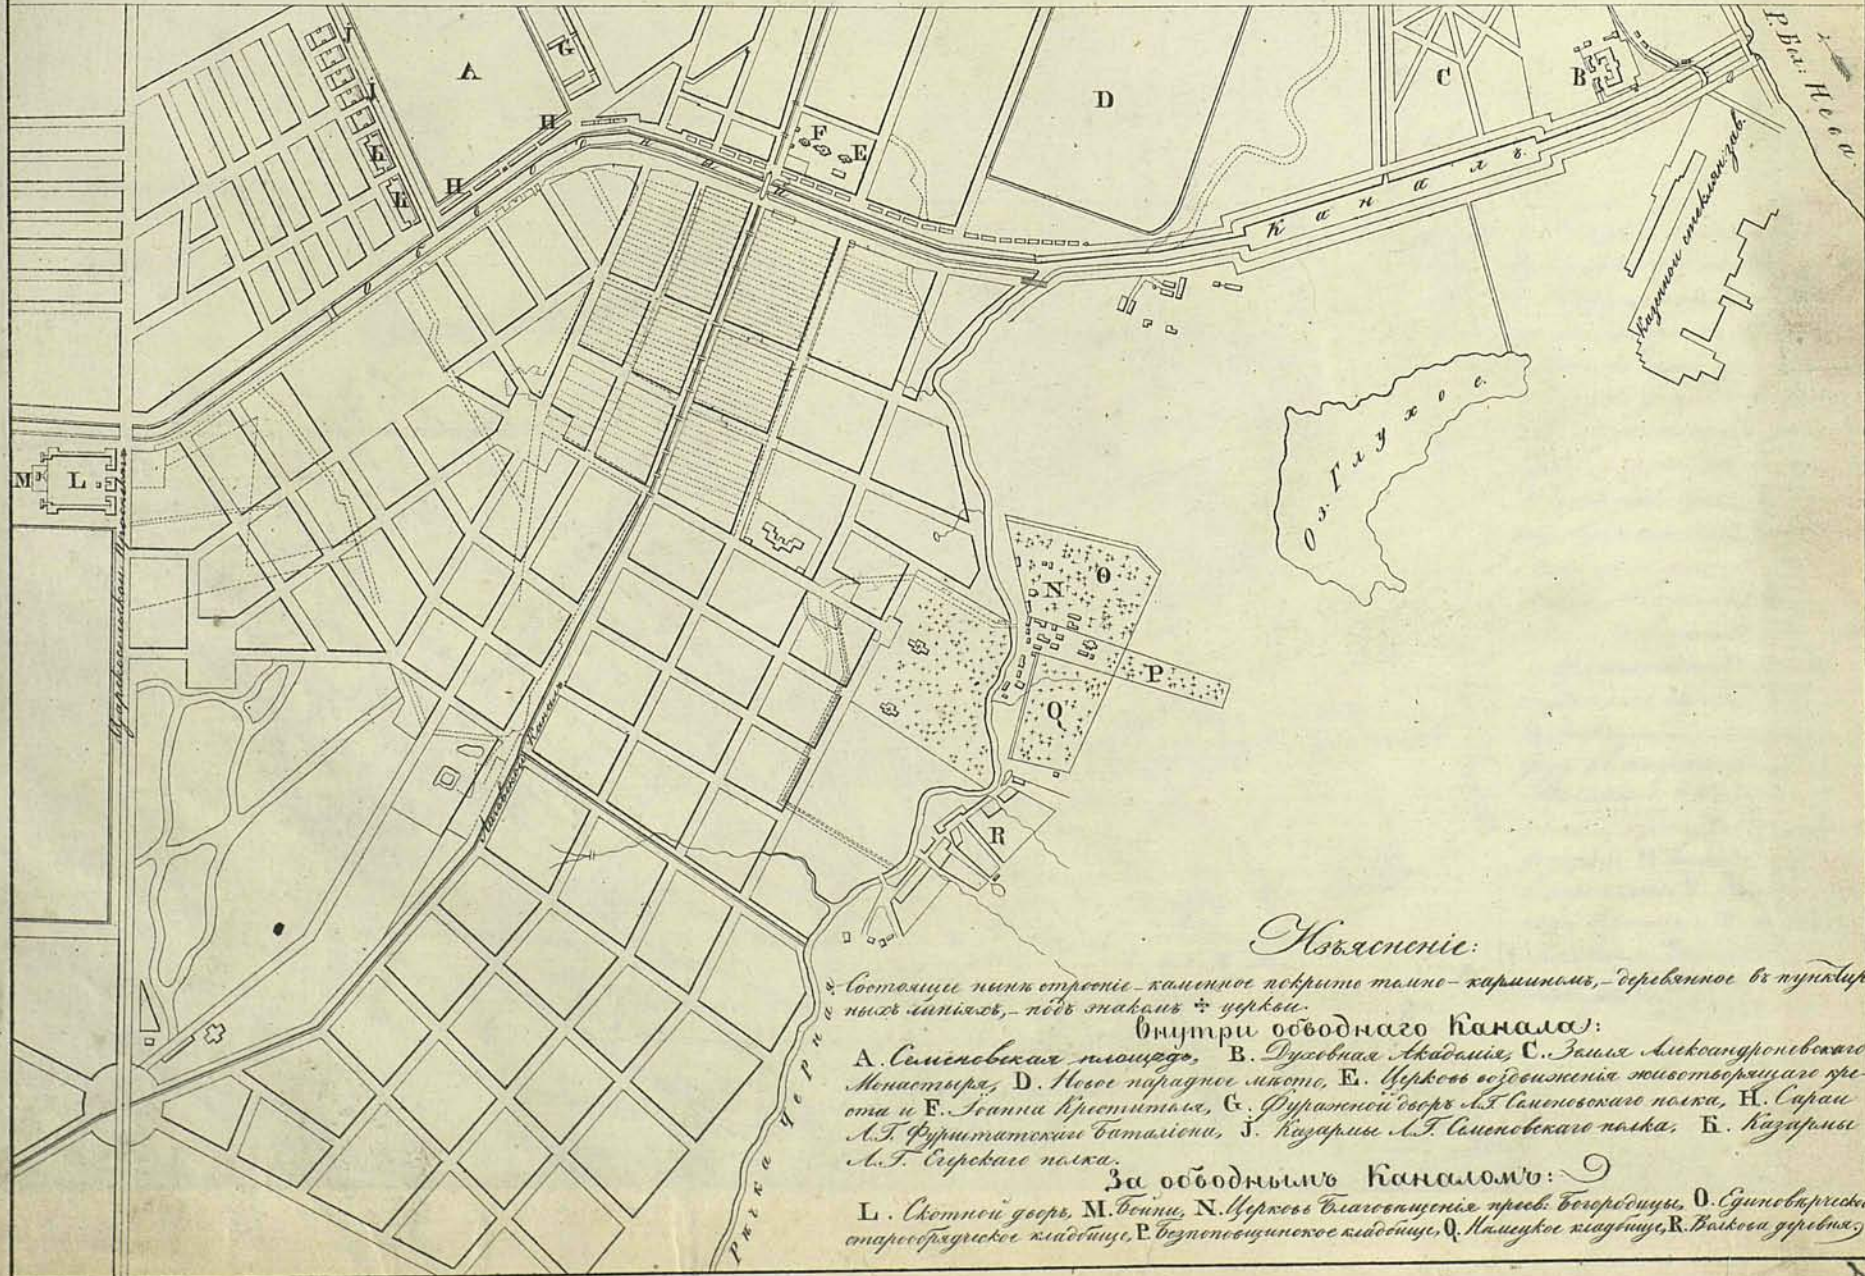 A
G
H
H
J
J
К
К
F
E
D
C
B
Р. Бол: Нева
Обводной
Каналъ
Казенной стеклян: зав.
Оз. Глухое.
M
L
Царскосельской Проспектъ
Литовской Каналъ
N
O
P
Q
R
Рѣчка Черная
Изъясненіе:
Состоящее нынѣ строеніе - каменное покрыто темно-карминомъ, - деревянное въ пунктир
ныхъ линіяхъ, - подъ знакомъ ÷ церкви.
Внутри обводнаго Канала:
A. Семеновская площадь, B. Духовная Академія, C. Земля Александроневскаго
Монастыря, D. Новое парадное мѣсто, E. Церковь воздвиженія животворящаго кре-
ста и F. Іоанна Крестителя, G. Фуражной дворъ Л.Г. Семеновскаго полка, H. Сараи
Л.Г. Фурштатскаго Баталіона, J. Казармы Л.Г. Семеновскаго полка, К. Казармы
Л.Г. Егерскаго полка.
За обводнымъ Каналомъ:
L. Скотной дворъ, M. Бойни, N. Церковь Благовещенія пресв: Богородицы, O. Единовѣрческо
старообрядческое кладбище, P. Безпоповщинское кладбище, Q. Нѣмецкое кладбище, R. Волкова деревня.